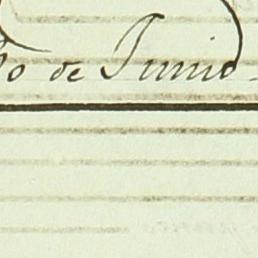 de Junio